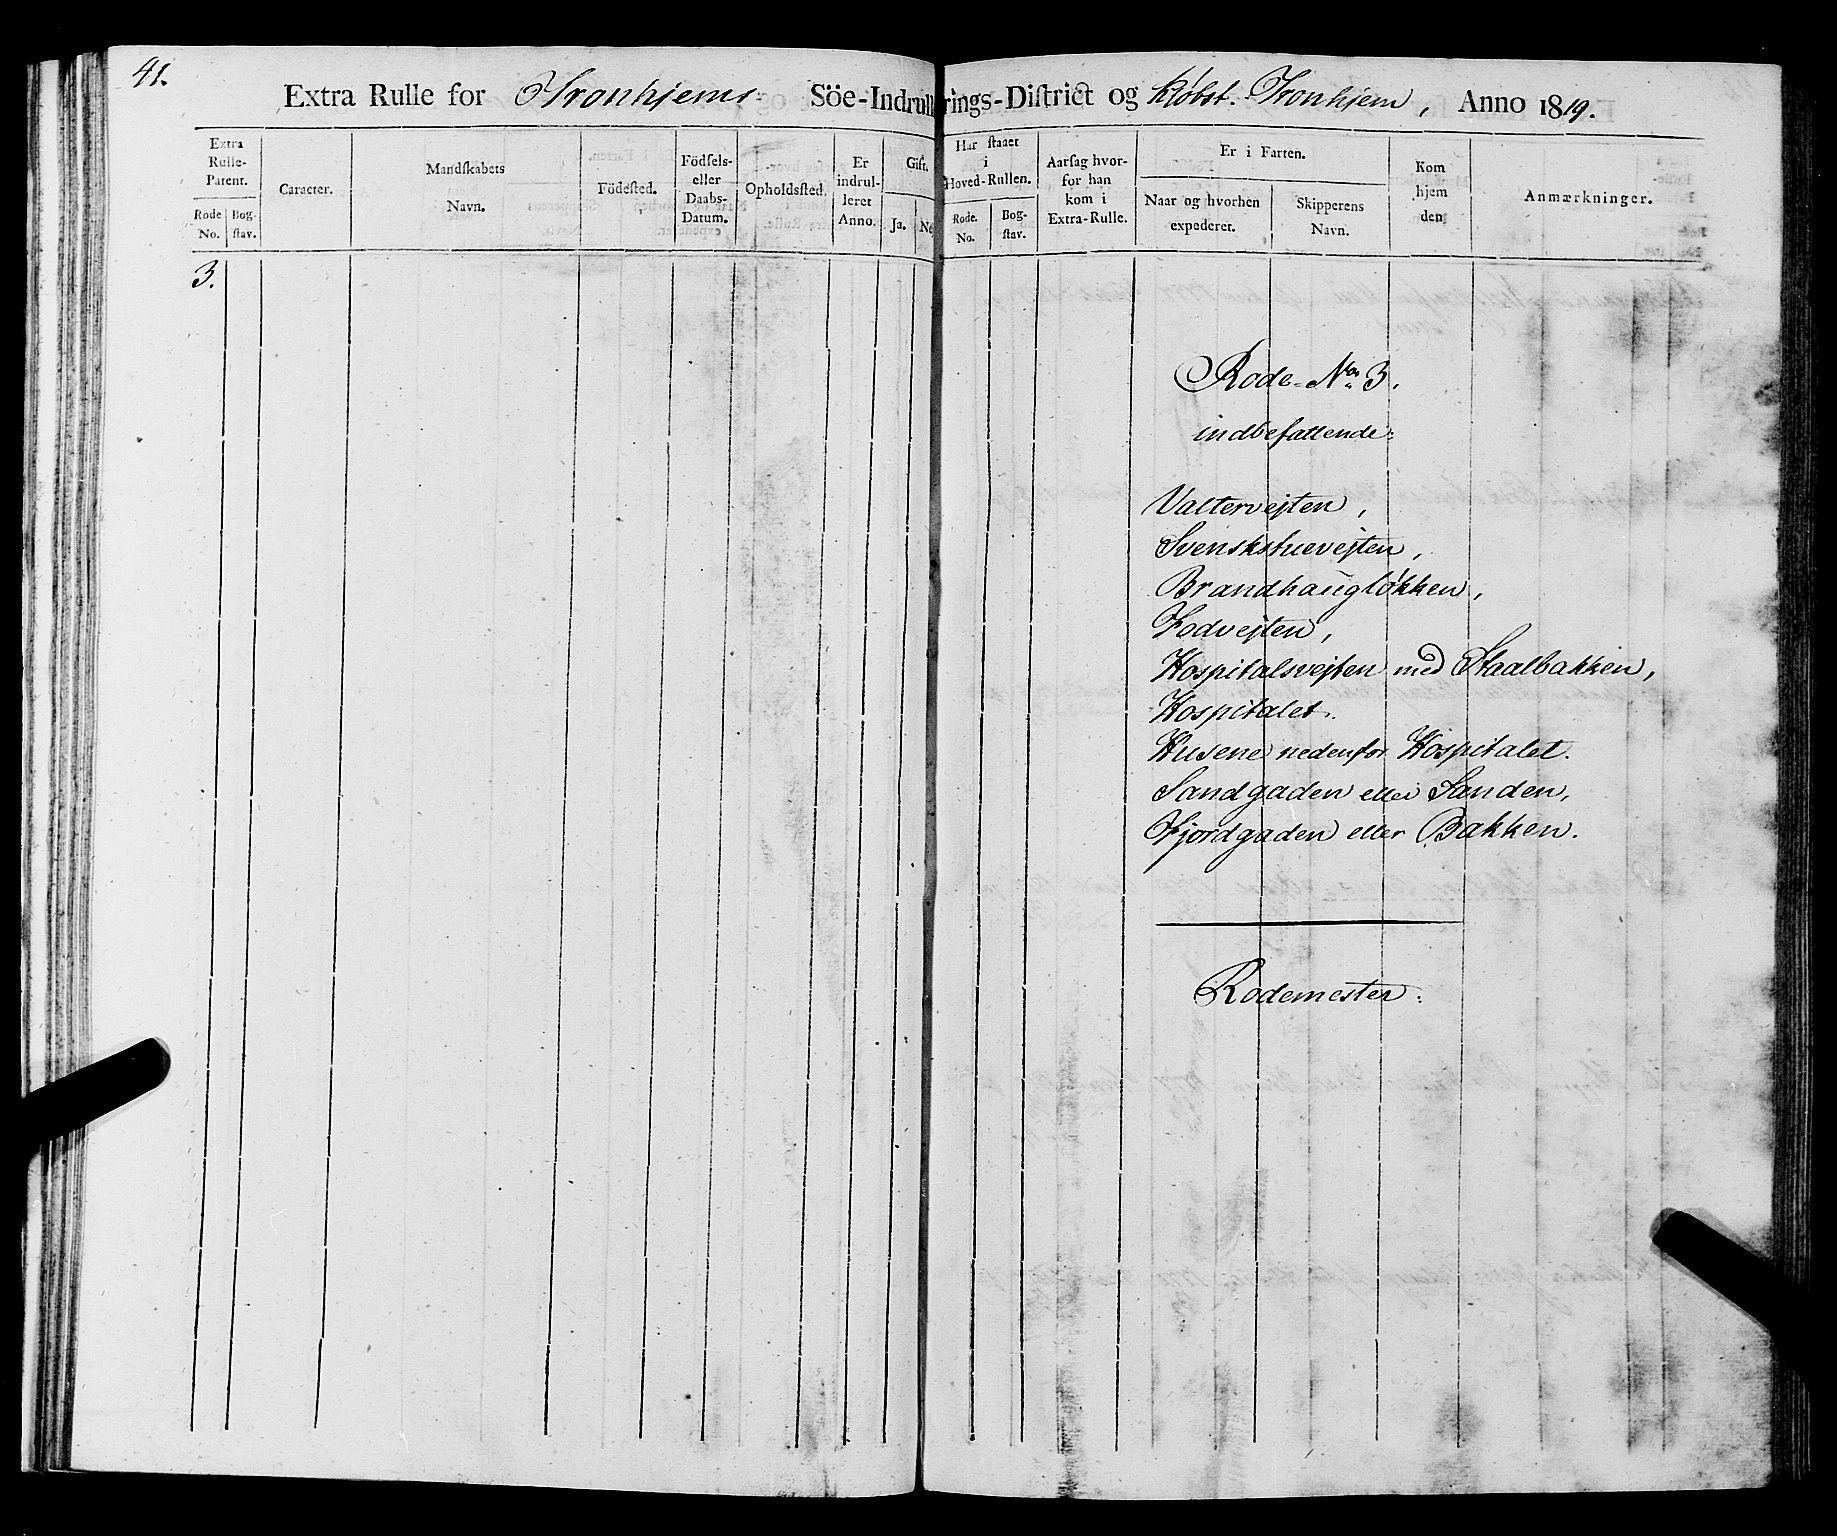 41.
Extra Rulle for Tronhjems Söe-Indrullerings-District og Kjøbst. Tronhjem, Anno 1819.
Extra Rulle-Patent.
Rode No.
Bog-stav.
Caracter.
Mandskabets Navn.
Födested.
Födsels- eller Daabs-Datum.
Opholdssted.
Er indrulleret Anno.
Gift.
Ja.
Har staaet i Hoved-Rullen.
Rode. No.
Bog-stav.
Aarsag hvorfor han kom i Extra-Rulle.
Er i Farten.
Naar og hvorhen expederet.
Skipperens Navn.
Kom hjem den
Anmærkninger.
3.
Rode No. 3.
indbefattende:
Valtervejten,
Svenskstuevejten,
Brandhaugløkken,
Fodvejten,
Hospitalsvejten med Staalbakken,
Hospitalet.
Husene nedenfor Hospitalet.
Sandgaden eller Sanden,
Fjordgaden eller Bakken.
Rodemester: